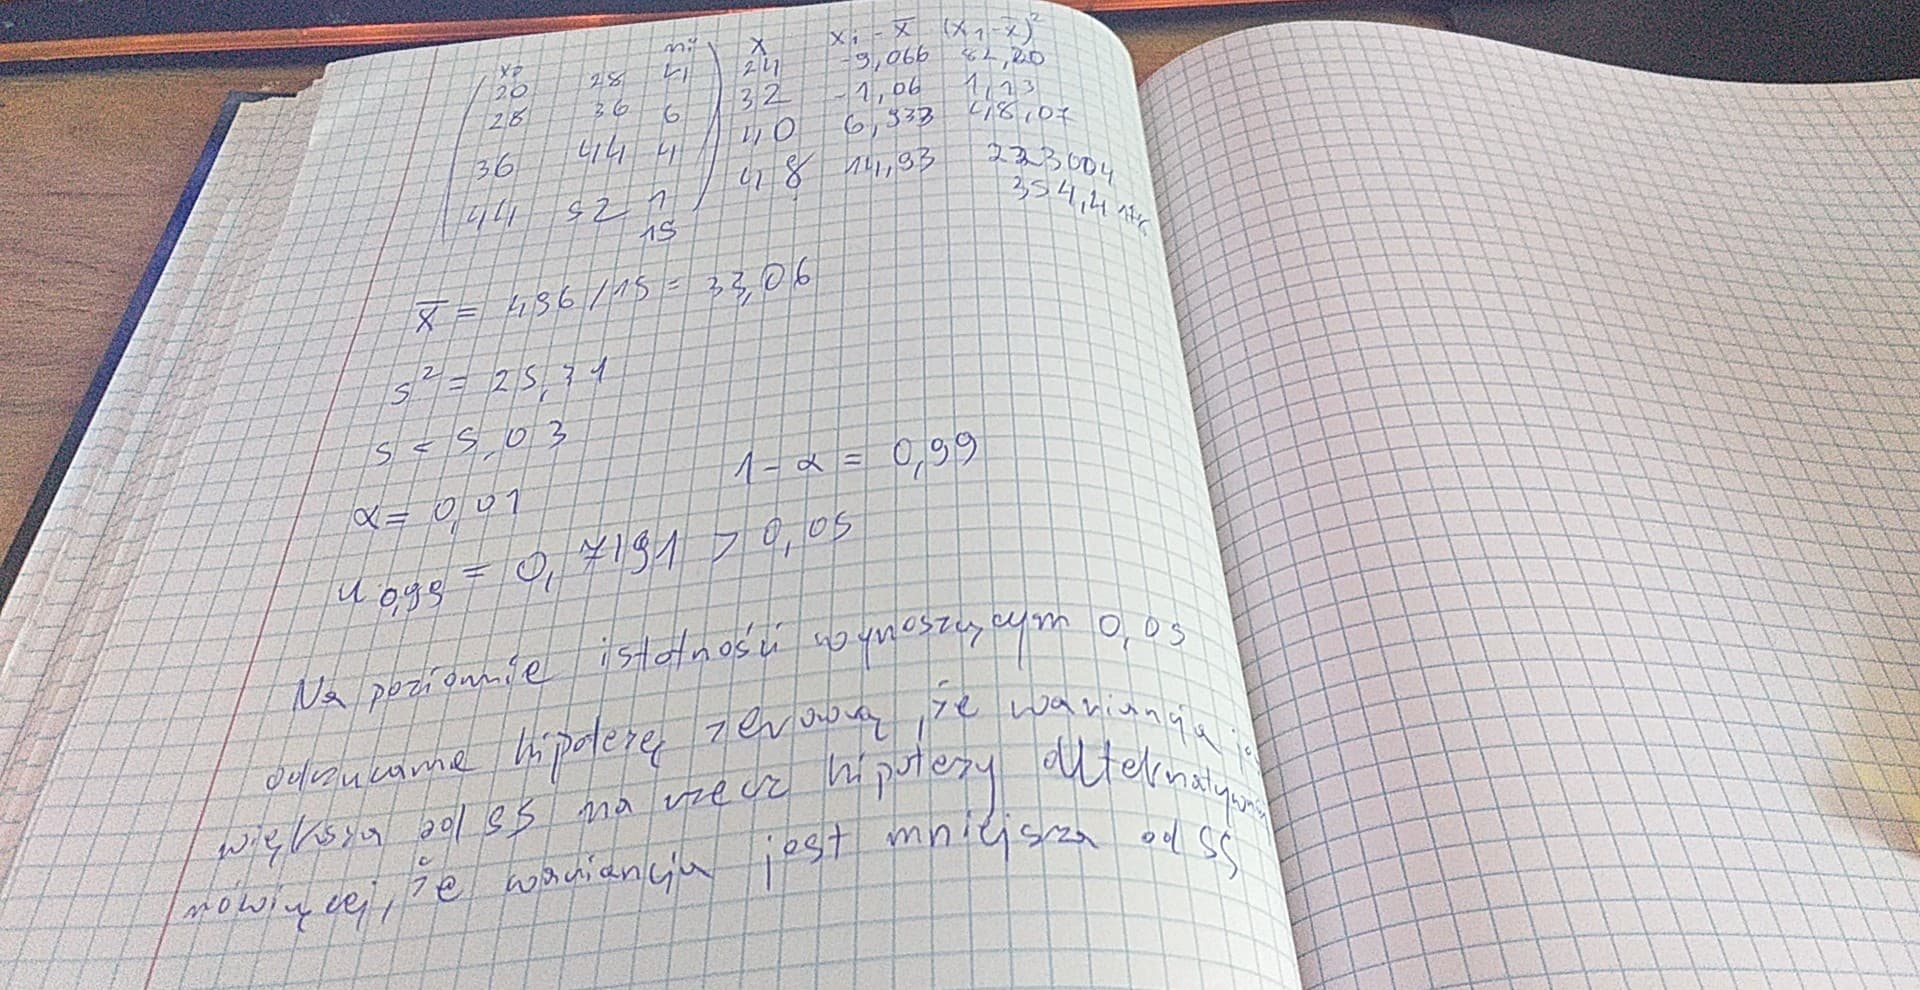 x₀ nᵢ x xᵢ - x̄ (x₁-x̄)²
20 28 4 24 -9,066 82,20
28 36 6 32 -1,06 1,13
36 44 4 40 6,933 48,07
44 52 1 48 14,93 223004
15 354,4
x̄ = 496/15 = 33,06
s² = 25,31
s = 5,03
α = 0,01 1-α = 0,99
u 0,99 = 0,7191 > 0,05
Na poziomie istotności wynoszącym 0,05
odrzucame hipotezę zerową, że wariancja
większa od 55 na rzecz hipotezy alternatywnej
mówiącej, że wariancja jest mniejsza od 55